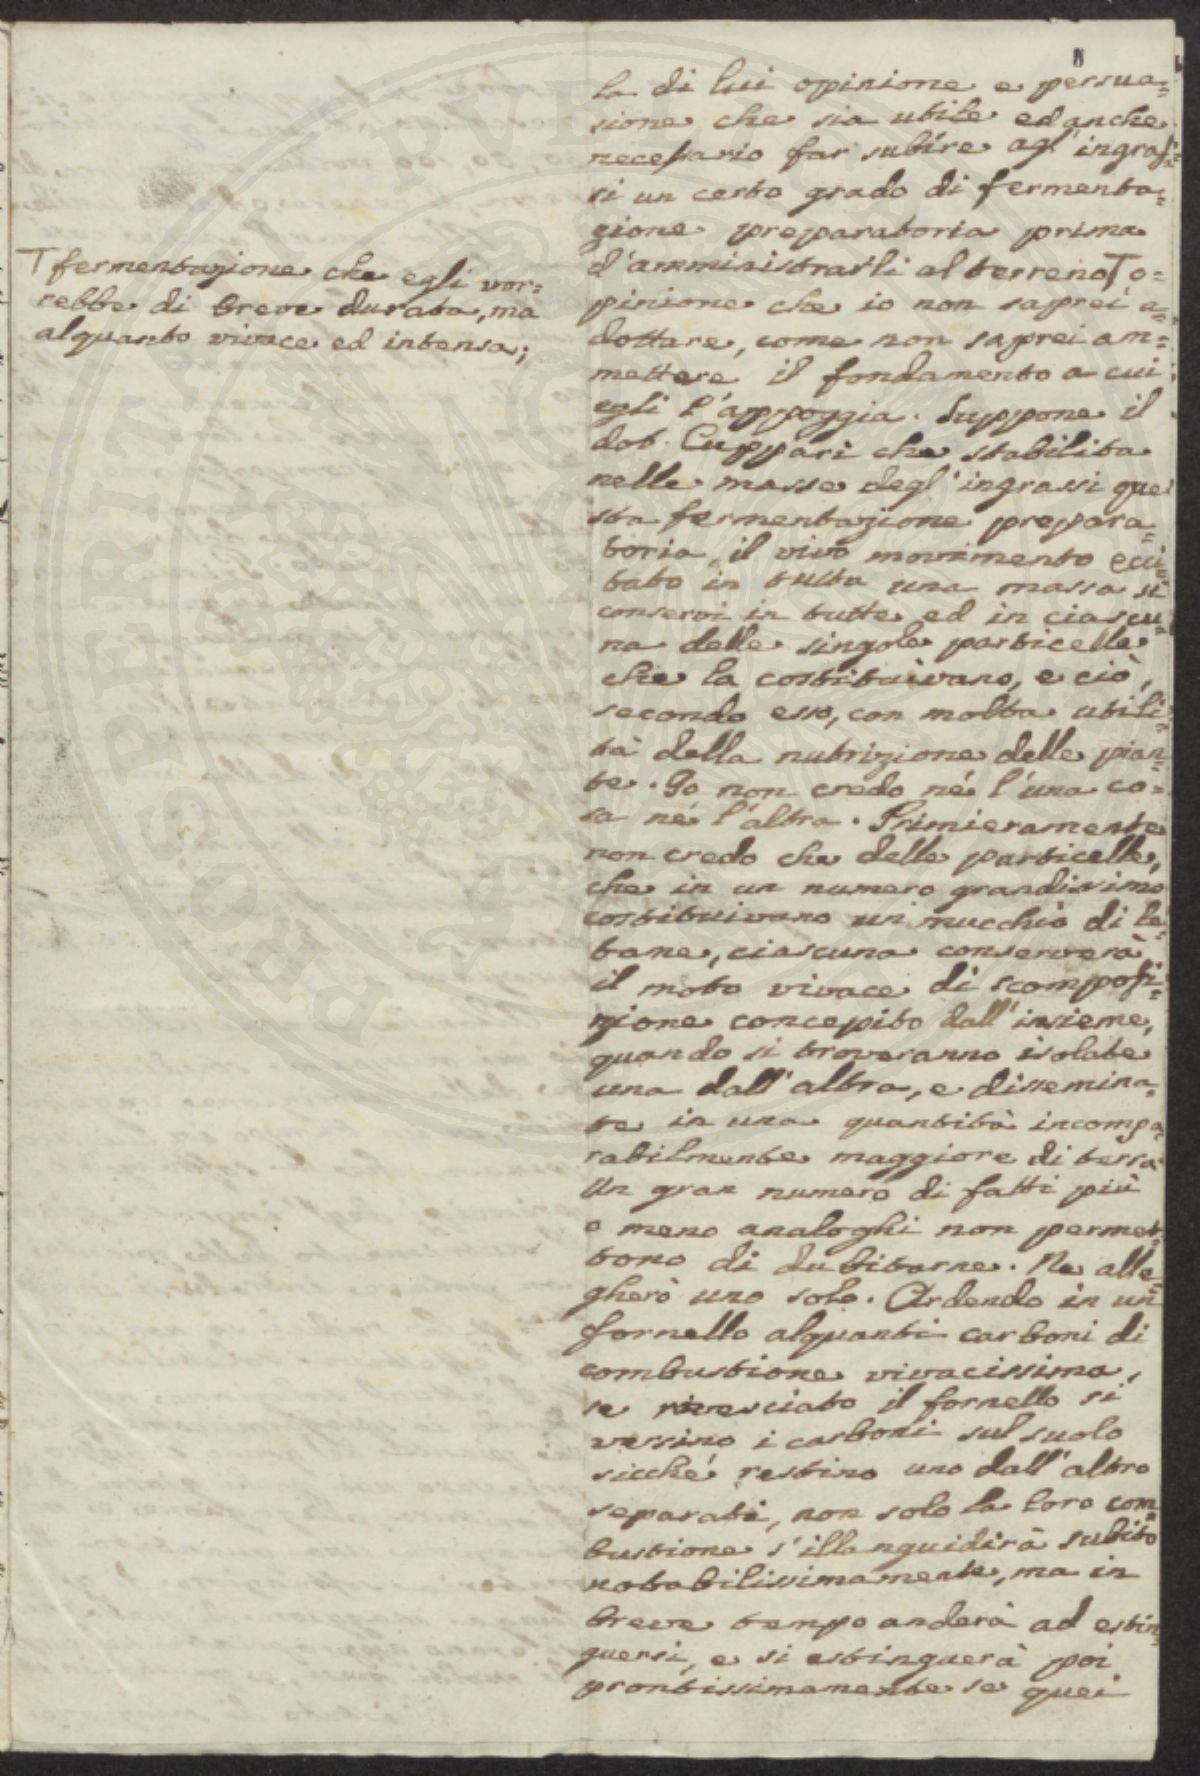 8
la di lui opinione e persua=
sione che sia utile ed anche
necessario far subire agl'ingras=
si un certo grado di fermenta=
zione preparatoria prima
d'amministrarli al terreno T o=
pinione che io non saprei a=
dottare, come non saprei am=
mettere il fondamento a cui
egli l'appoggia. Suppone il
dot. Cuppari che stabilita
nelle masse degl'ingrassi que
sta fermentazione prepara=
toria, il vivo movimento ecci=
tato in tutta una massa si
conservi in tutte ed in ciascu=
na delle singole particelle
che la costituivano, e ciò,
secondo esso, con molta utili=
tà della nutrizione delle pian=
te. Io non credo né l'una co=
sa né l'altra. Primieramente
non credo che delle particelle,
che in un numero grandissimo
costituivano un mucchio di le=
tame, ciascuna conserverà
il moto vivace di scomposi=
zione concepito dall'insieme,
quando si troveranno isolate
una dall'altra, e dissemina=
te in una quantità incompa=
rabilmente maggiore di terra.
Un gran numero di fatti più
o meno analoghi non permet=
tono di dubitarne. Ne alle=
gherò uno solo. Ardendo in un
fornello alquanti carboni di
combustione vivacissima,
se rovesciato il fornello si
versino i carboni sul suolo
sicché restino uno dall'altro
separati, non solo la loro com=
bustione s'illanguidirà subito
notabilissimamente, ma in
breve tempo anderà ad estin=
guersi, e si estinguerà poi
prontissimamente se quei
T fermentazione che egli vor=
rebbe di breve durata, ma
alquanto vivace ed intensa;
PROSPERITATI PUBLICAE